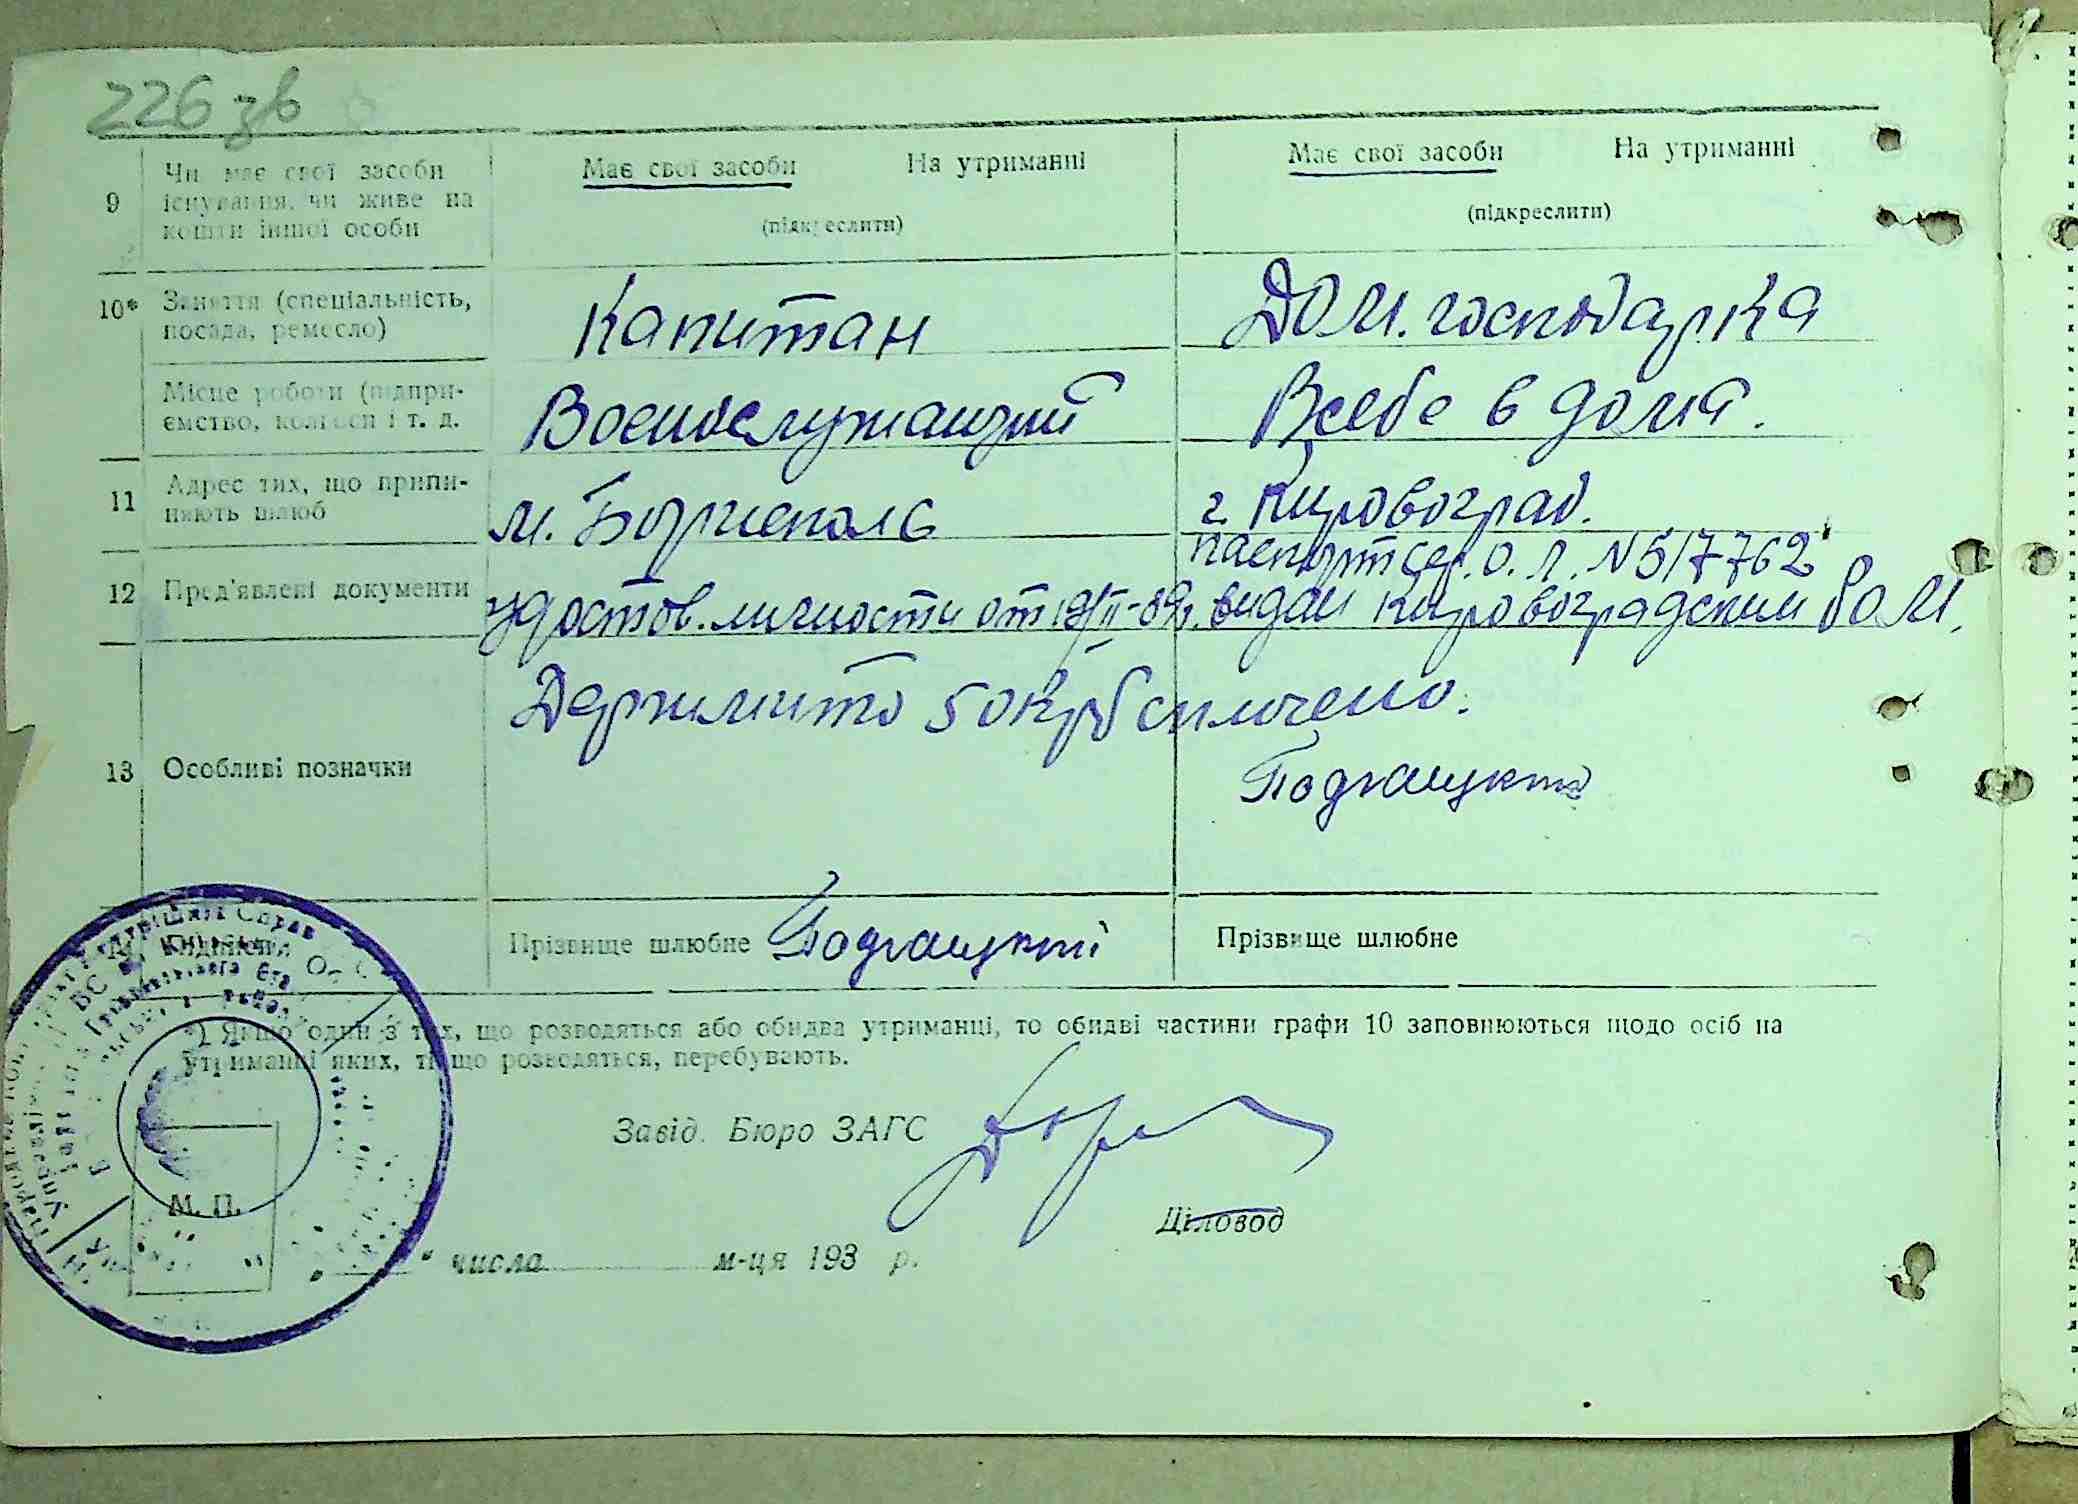 226 зв
9 Чи має свої засоби існування, чи живе на кошти іншої особи
Має свої засоби На утриманні
(підкреслити)
Має свої засоби На утриманні
(підкреслити)
10* Заняття (спеціальність, посада, ремесло)
Капитан
Дом. господарка
Місце роботи (підприємство, колгосп і т. д.
Военослужащий
Всебе в дома.
11 Адрес тих, що припиняють шлюб
м. Борисполь
г. Кировоград.
12 Пред'явлені документи
удостов. личности от 19/II-39г.
паспорт сер. О. Л. N 517762
видан Кировоградским РОМ.
13 Особливі позначки
Держмито 50 крб сплочено.
Прізвище шлюбне
Прізвище шлюбне
*) Якщо один з тих, що розводяться або обидва утриманці, то обидві частини графи 10 заповнюються щодо осіб на
утриманні яких, ті що розводяться, перебувають.
Завід. Бюро ЗАГС
Діловод
М. П.
" числа м-ця 193 р.